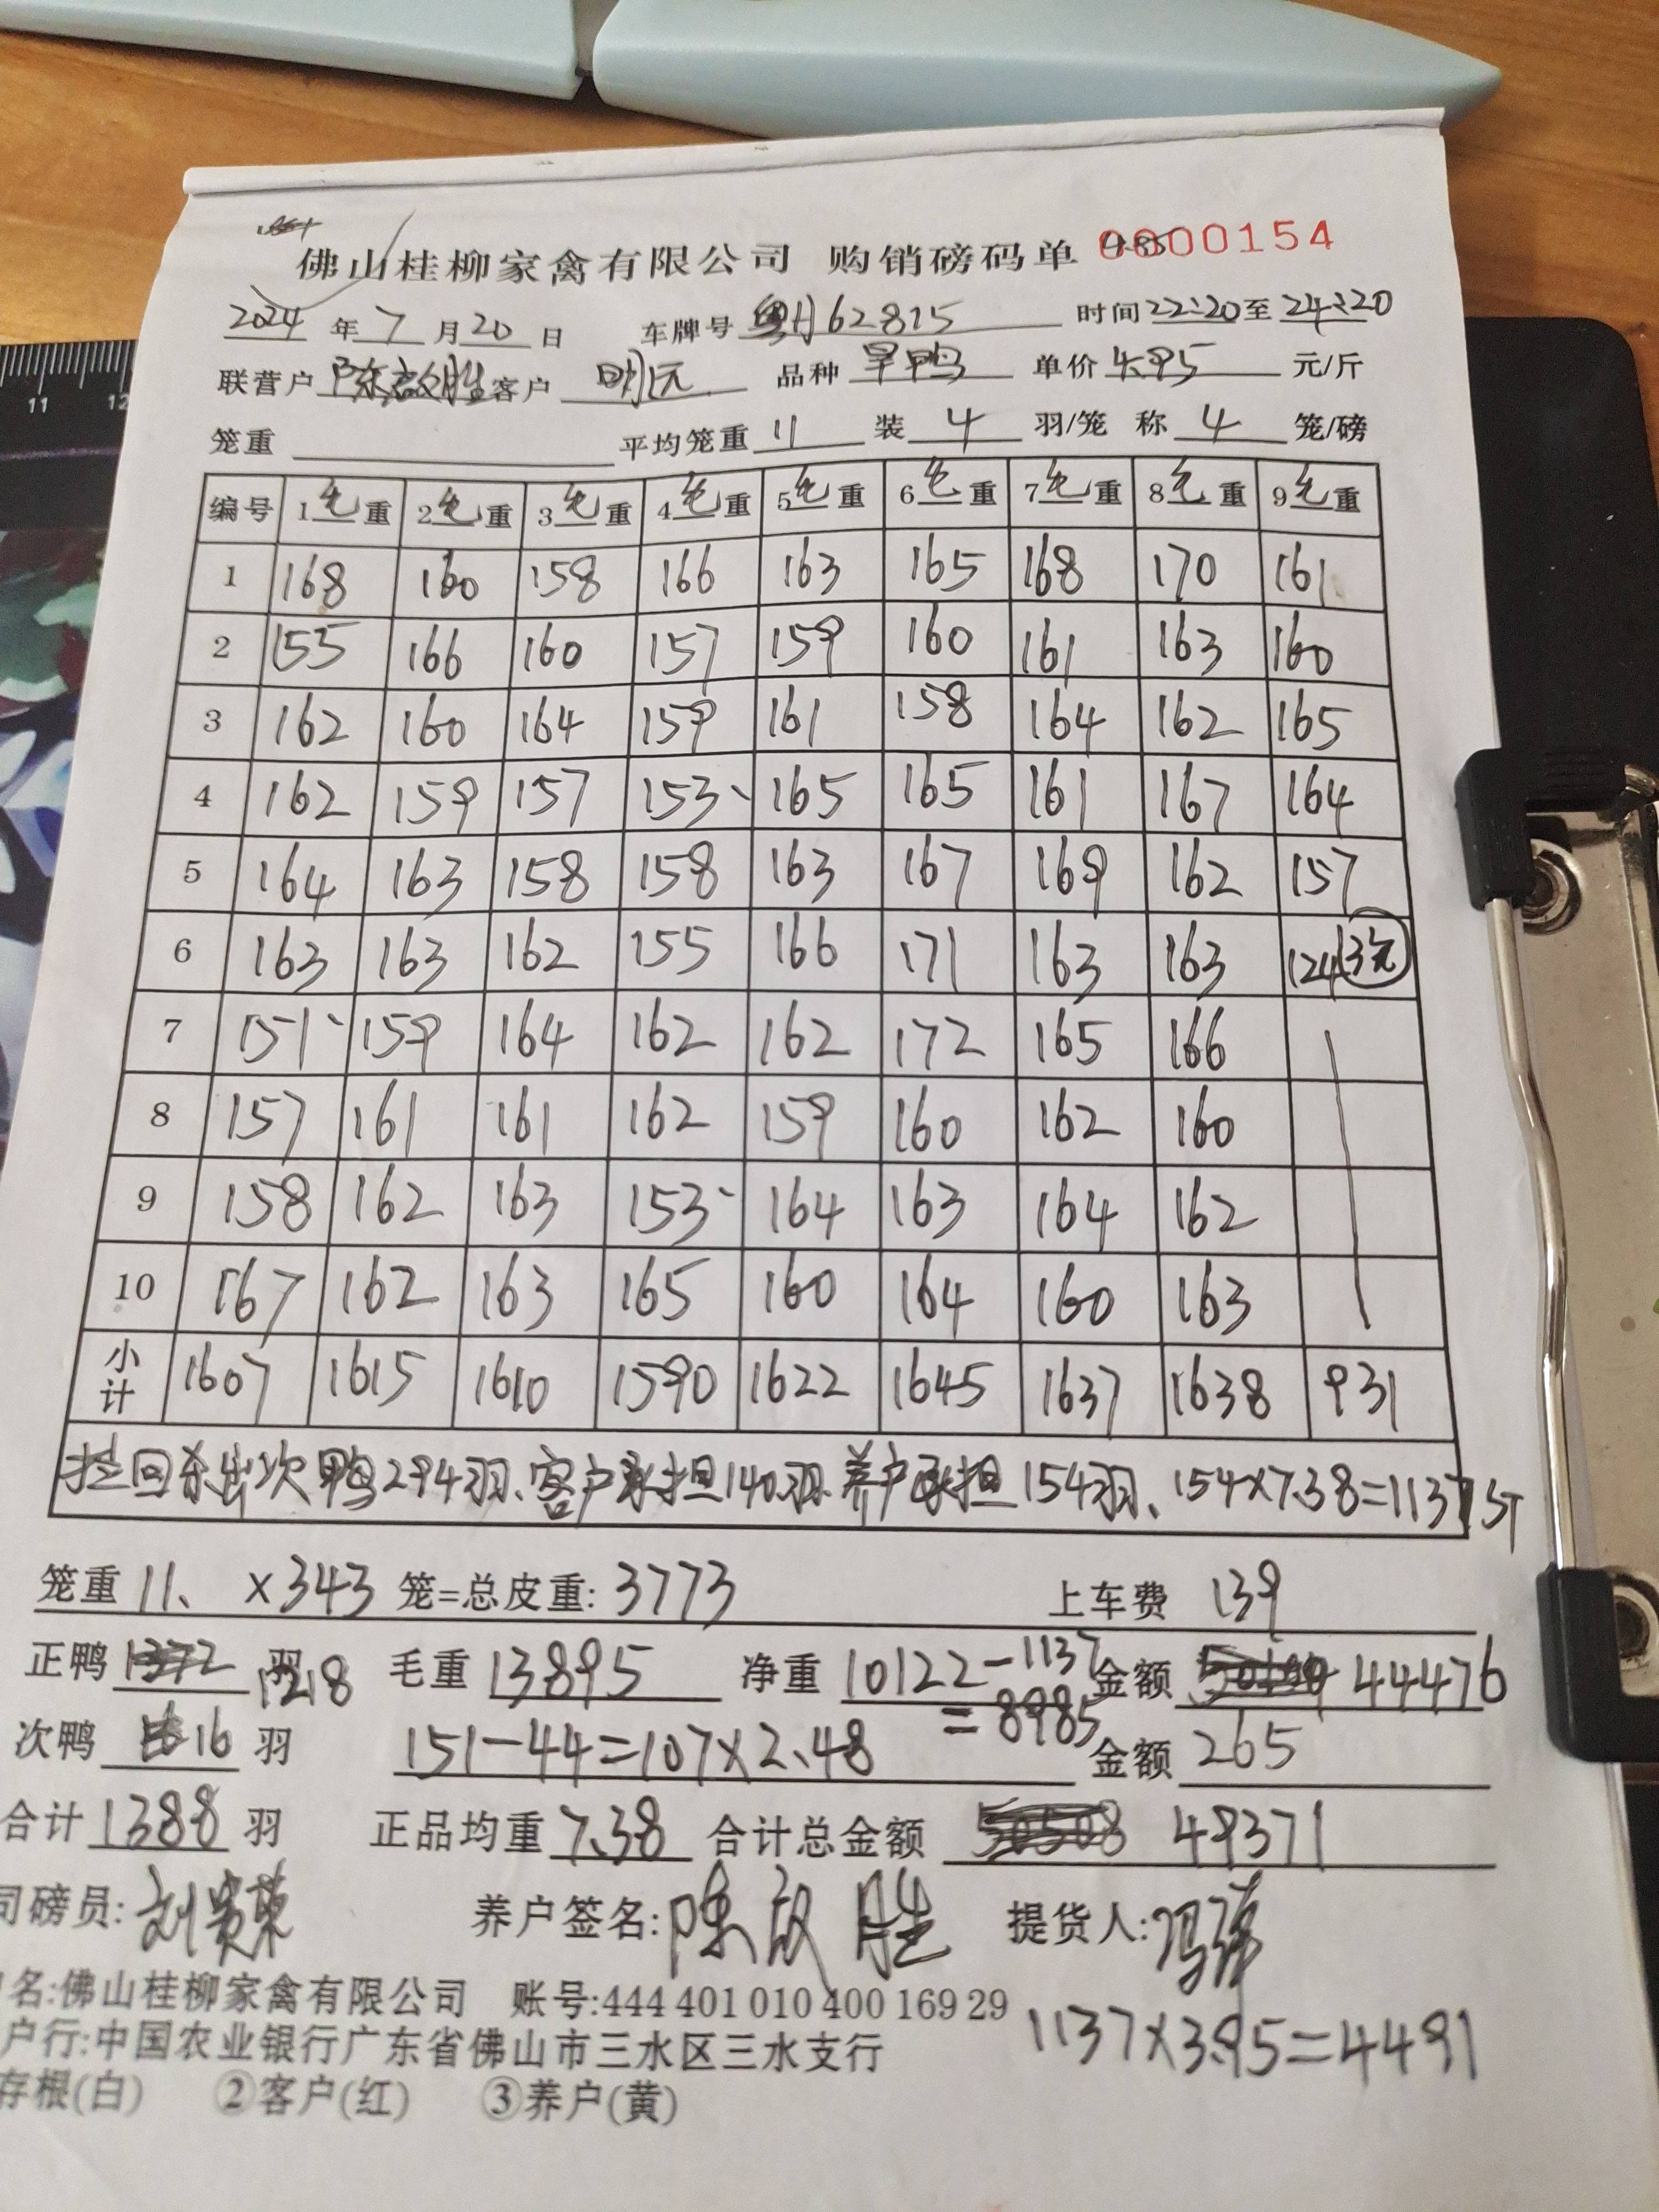 佛山桂柳家禽有限公司 购销磅码单 0000154
2024 年 7 月 20 日 车牌号 粤H62815 时间 22:20 至 24:20
联营户 陈啟胜 客户 明沅 品种 旱鸭 单价 4.95 元/斤
笼重 平均笼重 11 装 4 羽/笼 称 4 笼/磅
编号 1毛重 2毛重 3毛重 4毛重 5毛重 6毛重 7毛重 8毛重 9毛重
1 168 160 158 166 163 165 168 170 161
2 155 166 160 157 159 160 161 163 160
3 162 160 164 159 161 158 164 162 165
4 162 159 157 153 165 165 161 167 164
5 164 163 158 158 163 167 169 162 157
6 163 163 162 155 166 171 163 163 124
7 151 159 164 162 162 172 165 166
8 157 161 161 162 159 160 162 160
9 158 162 163 153 164 163 164 162
10 167 162 163 165 160 164 160 163
小计 1607 1615 1610 1590 1622 1645 1637 1638 931
拦回杀出次鸭294羽、客户承担140羽、养户承担154羽、154×7.38=1137斤
笼重 11、 ×343 笼=总皮重: 3773 上车费 139
正鸭 1218 羽 毛重 13895 净重 10122-1137=8985 金额 44476
次鸭 16 羽 151-44=107×2.48 金额 265
合计 1388 羽 正品均重 7.38 合计总金额 49371
司磅员: 刘贵荣 养户签名: 陈啟胜 提货人:
名:佛山桂柳家禽有限公司 账号:444 401 010 400 169 29
户行:中国农业银行广东省佛山市三水区三水支行
1137×3.95=4491
存根(白) ②客户(红) ③养户(黄)